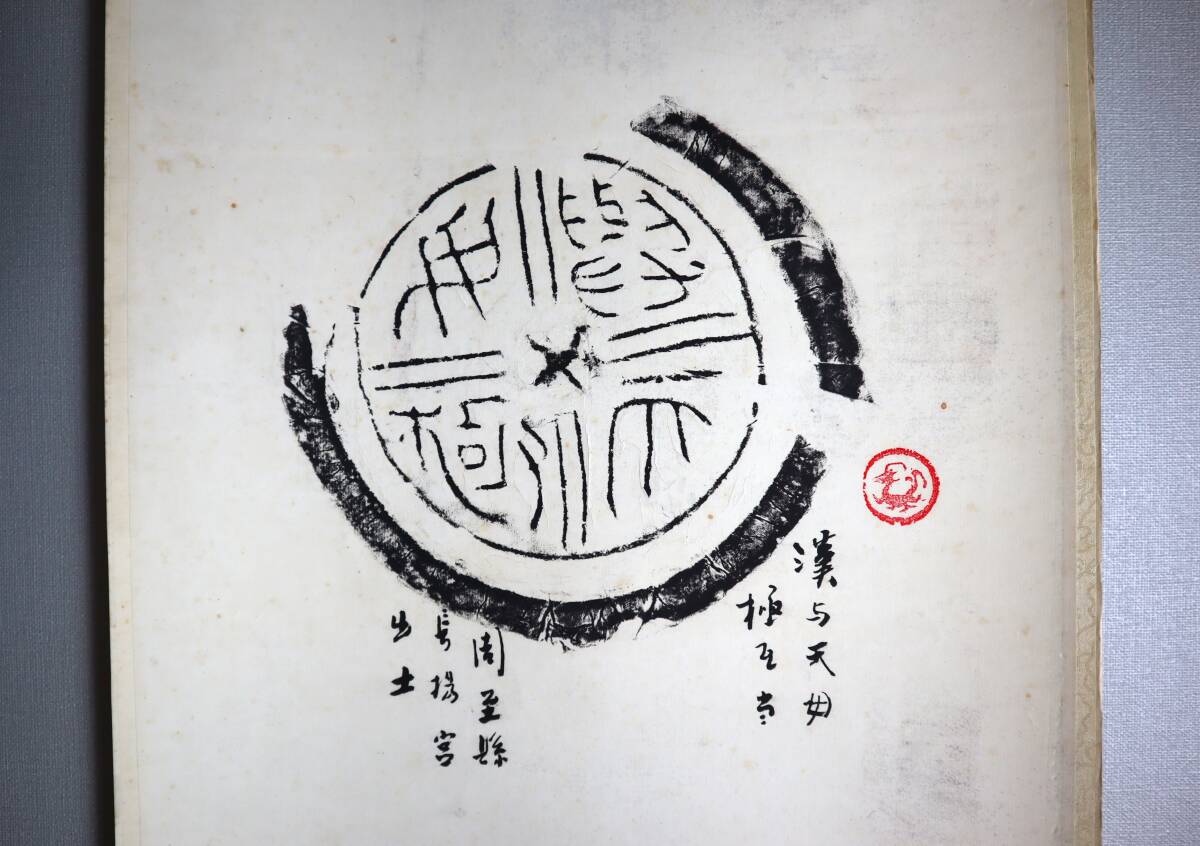 與天
毋極
漢与天毋
極瓦当
周至縣
長楊宮
出土